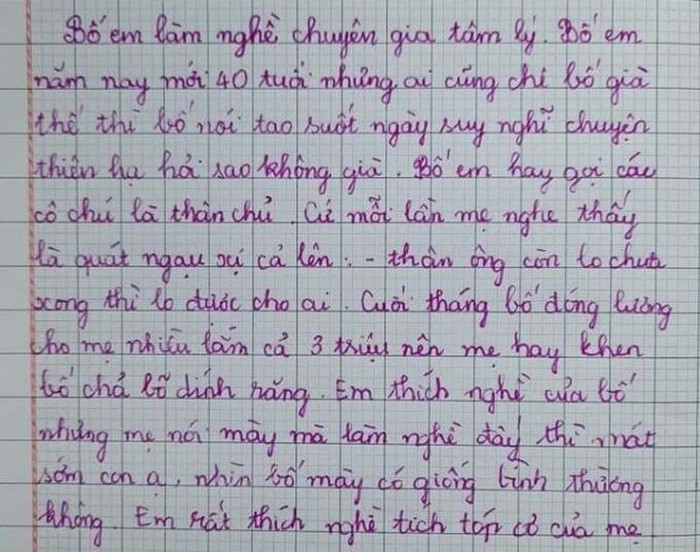 Bố em làm nghề chuyên gia tâm lý. Bố em
năm nay mới 40 tuổi nhưng ai cũng chê bố già
thế thì bố nói tao suốt ngày suy nghĩ chuyện
thiên hạ hỏi sao không già. Bố em hay gọi các
cô chú là thân chủ. Cứ mỗi lần mẹ nghe thấy
là quát ngau xị cả lên: - thân ông còn lo chưa
xong thì lo được cho ai. Cuối tháng bố đóng lương
cho mẹ nhiều lắm cả 3 triệu nên mẹ hay khen
bố chả bõ dính răng. Em thích nghề của bố
nhưng mẹ nói mày mà làm nghề đấy thì mát
sớm con ạ, nhìn bố mày có giống bình thường
không. Em rất thích nghề tích tóp cỏ của mẹ